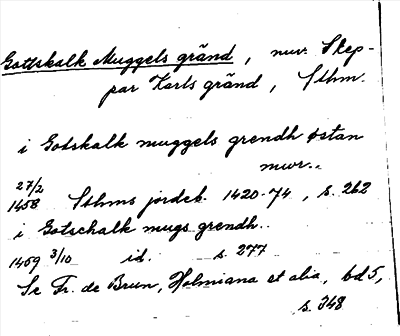 Gottskalk Muggels gränd, nuv. Skep-
par Karls gränd, Sthm.
i Gotskalk muggels grendh østan
mwr..
27/2
1458 Sthms jordeb. 1420-74, s. 262
i Gotschalk mugs grendh..
1459 3/10 id. s. 277
Se Fr. de Brun, Holmiana et alia, bd 5,
s. 348